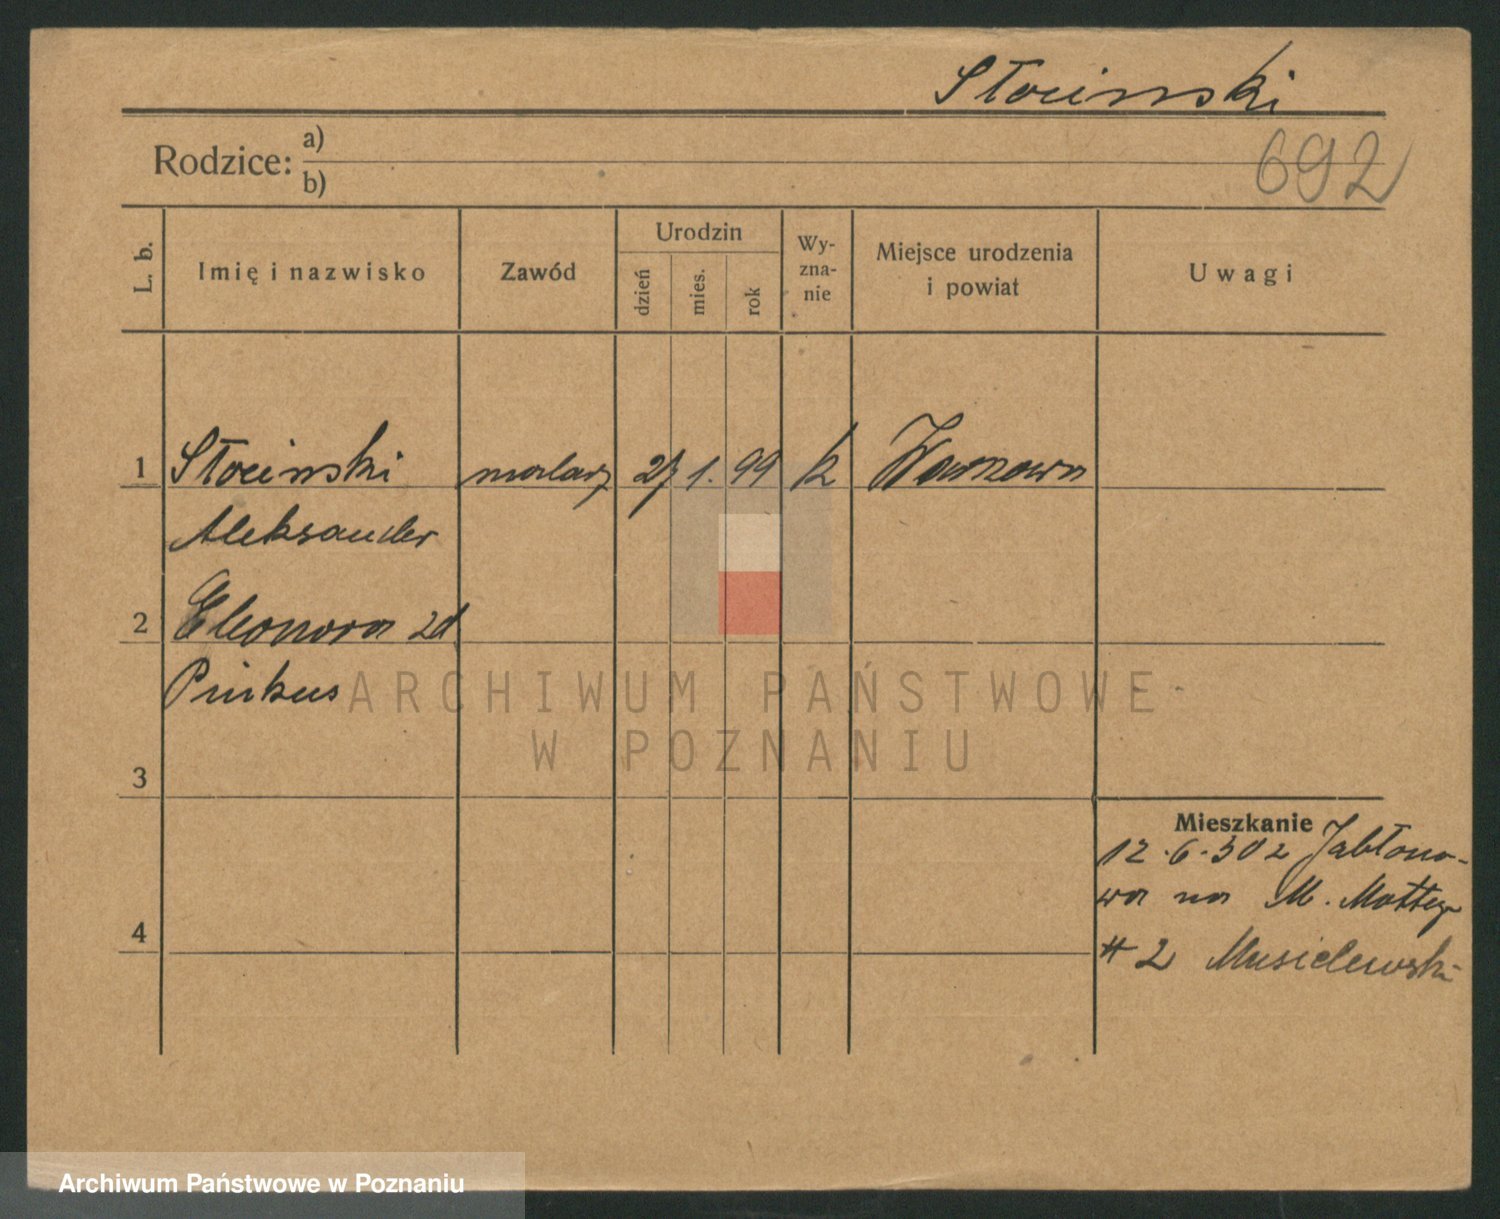 Słociński
Rodzice: a)
b)
692
L. b.
Imię i nazwisko
Zawód
Urodzin
dzień
mies.
rok
Wy-
zna-
nie
Miejsce urodzenia
i powiat
Uwagi
1 Słociński malarz 27 1. 99 k Warszawa
Aleksander
2 Eleonora zd
Pinkus
3
4
Mieszkanie
12.6.30 z Jabłono-
wa na M. Mottego
# 2 Musielewski
ARCHIWUM PAŃSTWOWE
W POZNANIU
Archiwum Państwowe w Poznaniu